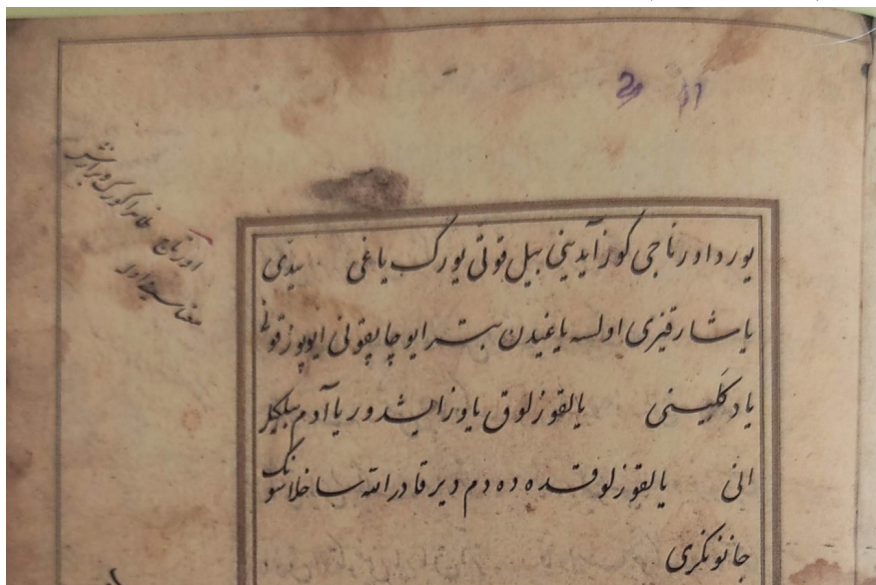 یورد اورتاجی کوز آیدینی بیل قوتی یورک یاغی یدّی
یاشار قیزی اولسه یاغیدن بتر ایو چاپقونی ایو یوز قونی
یاد کلینی یالقوز لوق یاوز ایشدور یا آدم بیلکیلر
انی یالقوز لوقده ده دم دیر قادر الله ساخلاسونک
جانونکزی